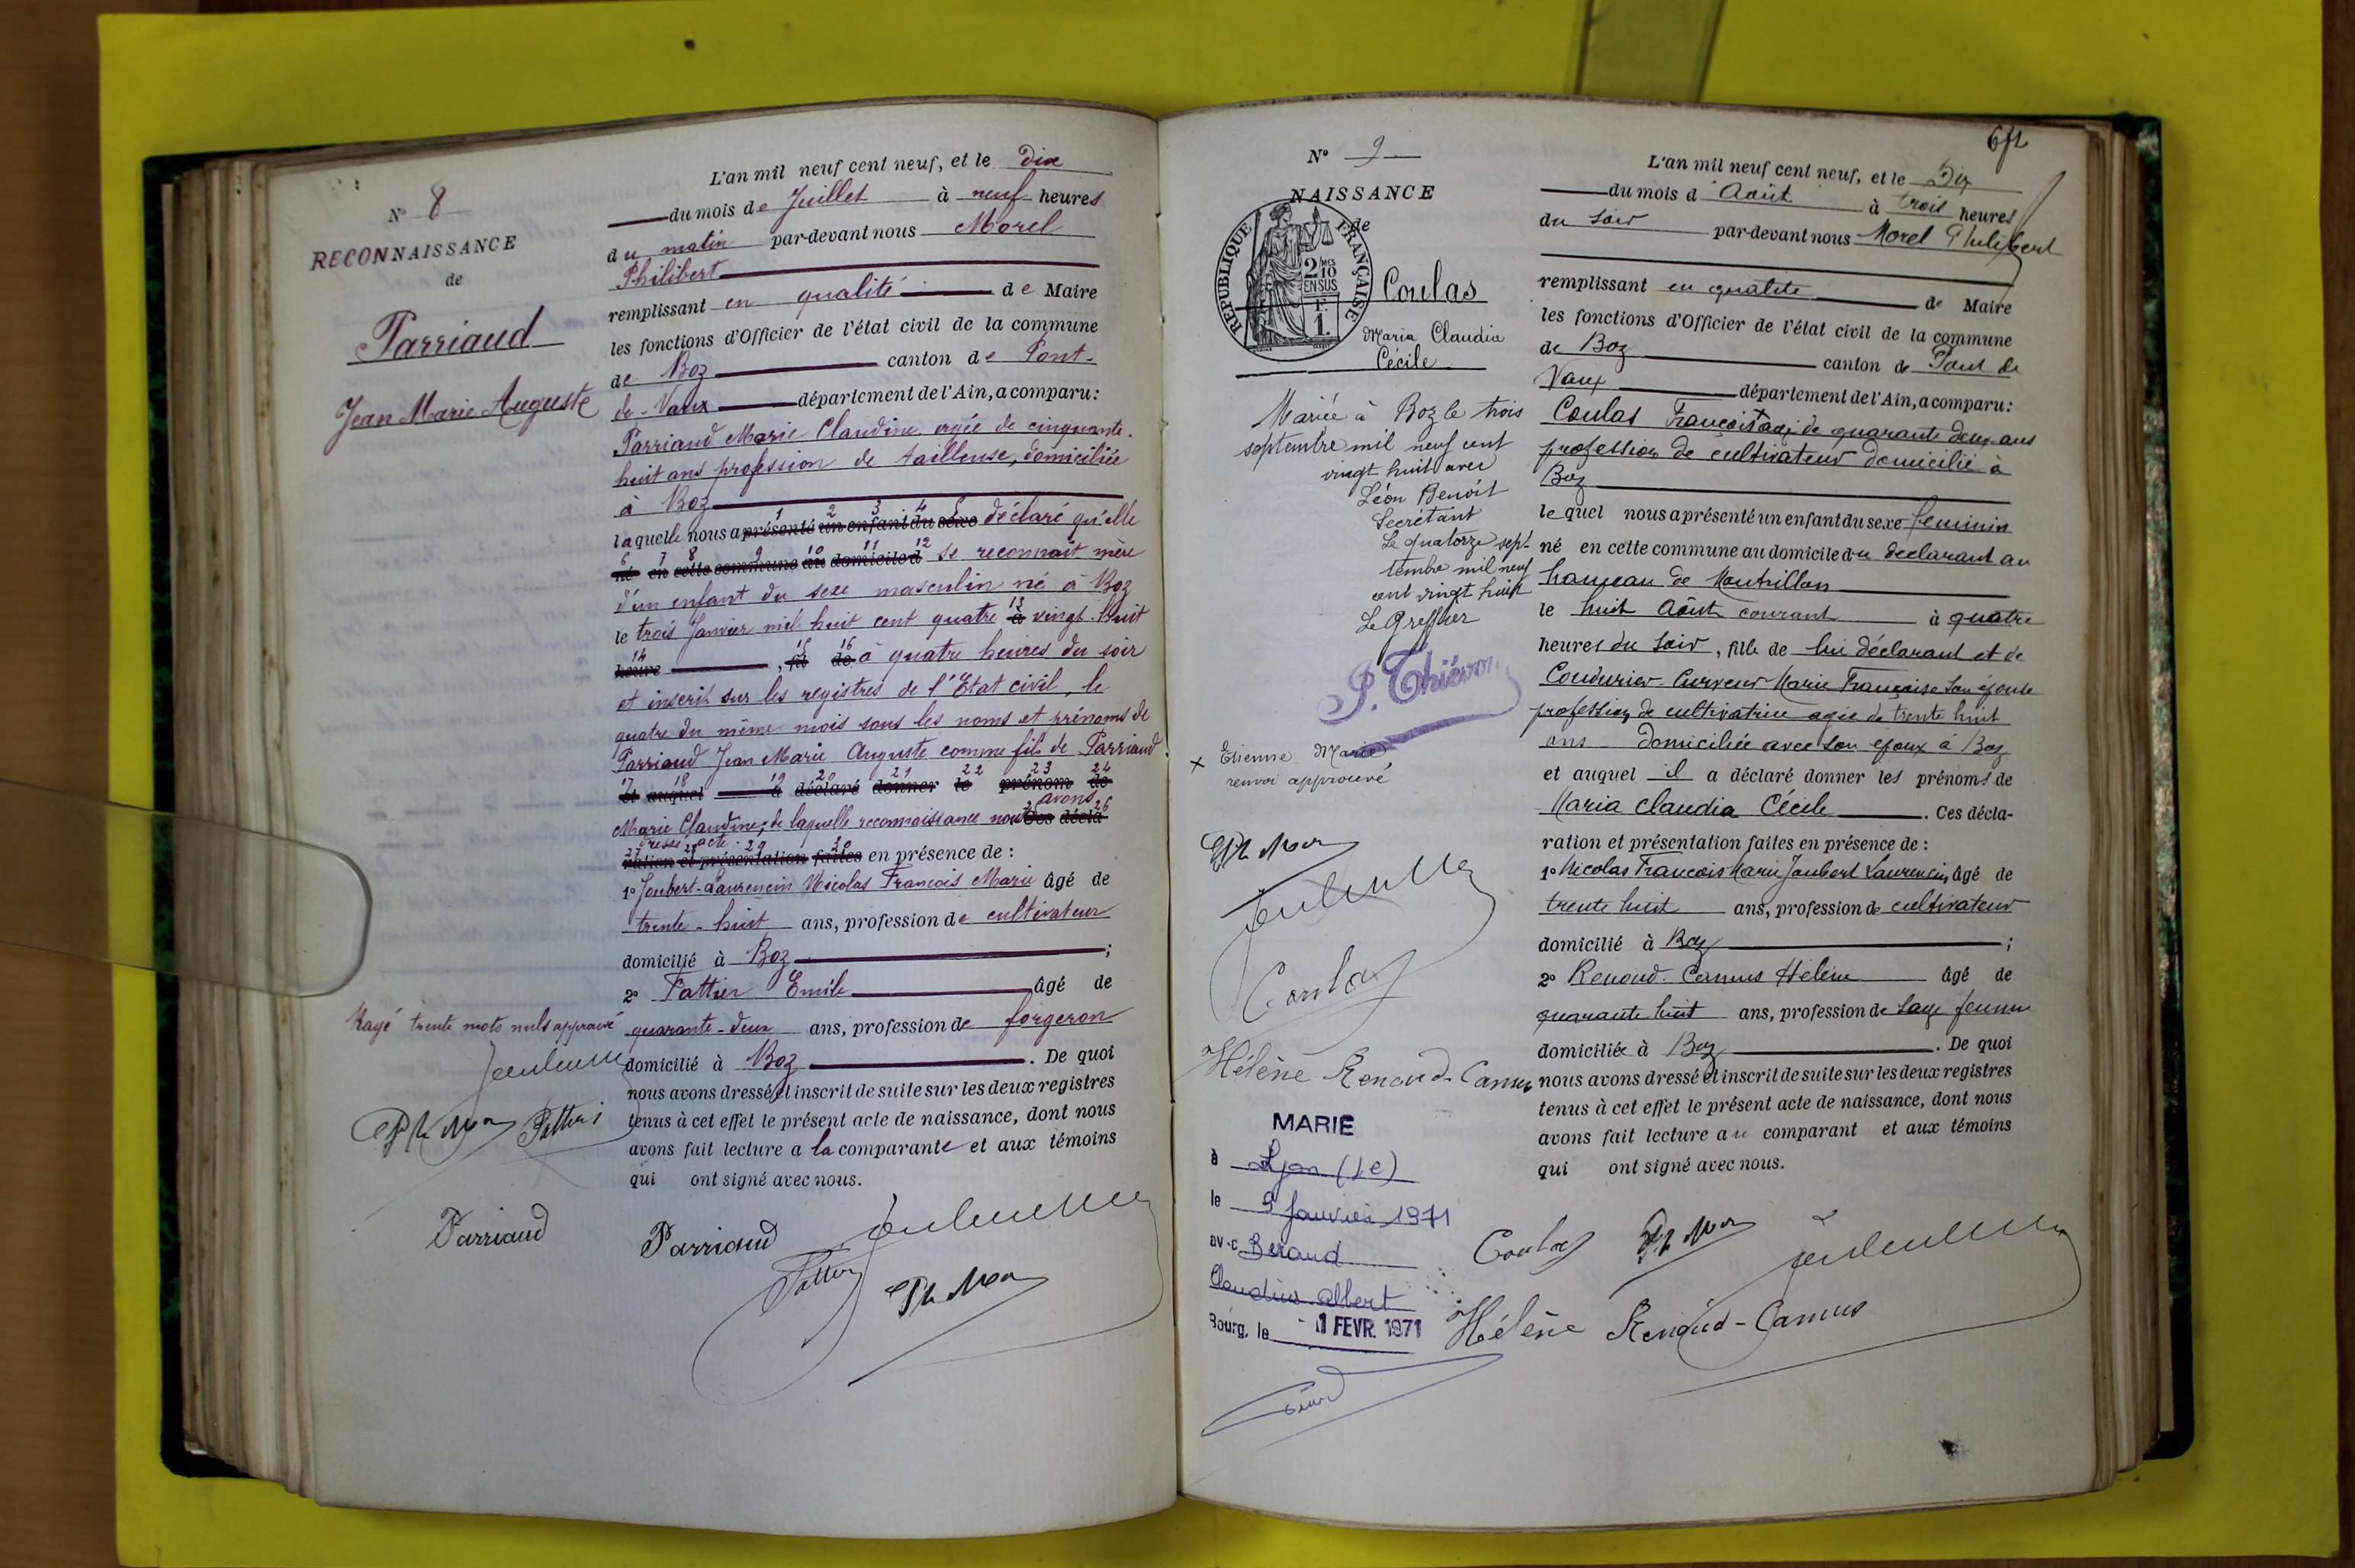 N° 8
RECONNAISSANCE
de
Parriaud
Jean Marie Auguste
L'an mil neuf cent neuf, et le Dix
du mois de Juillet à neuf heures
du matin par-devant nous Morel
Philibert
remplissant en qualité de Maire
les fonctions d'Officier de l'état civil de la commune
de Boz canton de Pont-
de-Vaux département de l'Ain, a comparu:
Parriaud Marie Claudine agée de cinquante-
huit ans profession de tailleuse, domiciliée
à Boz
1 2 3 4 5
laquelle nous a présenté un enfant du sexe déclaré qu'elle
6 7 8 9 10 11 12
né en cette commune au domicile d se reconnait mère
d'un enfant du sexe masculin né à Boz
13
le trois Janvier mil huit cent quatre à vingt-huit
14 15 16
heure , fil de, à quatre heures du soir
et inscrit sur les registres de l'Etat civil, le
quatre du même mois sous les noms et prénoms de
Parriaud Jean Marie Auguste comme fils de Parriaud
17 18 19 20 21 22 23 24
et auquel a déclaré donner le prénom de
avons 25 26
Marie Claudine; de laquelle reconnaissance nous Ces décla
dressé acte. 27 28 29 30
ration et présentation faites en présence de :
1° Joubert-Laurencin Nicolas François Marie âgé de
trente-huit ans, profession de cultivateur
domicilié à Boz ;
2° Fattier Emile âgé de
quarante-deux ans, profession de forgeron
domicilié à Boz . De quoi
nous avons dressé et inscrit de suite sur les deux registres
tenus à cet effet le présent acte de naissance, dont nous
avons fait lecture a la comparante et aux témoins
qui ont signé avec nous.
Rayé trente mots nuls approuvé
Parriaud
Parriaud
N° 9
NAISSANCE
de
REPUBLIQUE FRANÇAISE
2/10 MES
EN SUS
1 F.
Coulas
Maria Claudia
Cécile
Mariée à Boz le trois
septembre mil neuf cent
vingt huit avec
Léon Benoît
Secrétant
Le quatorze sept-
tembre mil neuf
cent vingt huit
Le Greffier
P. Thiévon
x Etienne Marie
renvoi approuvé
Coulas
Hélène Renoud-Camus
MARIE
à Lyon (1e)
le 9 Janvier 1971
avec Beraud
Claudius Albert
Bourg, le -1 FEVR. 1971
L'an mil neuf cent neuf, et le Dix
du mois d Août à trois heures
du soir par-devant nous Morel Philibert
remplissant en qualité de Maire
les fonctions d'Officier de l'état civil de la commune
de Boz canton de Pont de
Vaux département de l'Ain, a comparu:
Coulas François x agé de quarante deux ans
profession de cultivateur domicilié à
Boz
lequel nous a présenté un enfant du sexe feminin
né en cette commune au domicile du declarant au
hameau de Montrillon
le huit Août courant à quatre
heures du soir, fille de lui déclarant et de
Coudurier-Curveur Marie Françoise son épouse
profession de cultivatrice agée de trente huit
ans domiciliée avec son époux à Boz
et auquel il a déclaré donner les prénoms de
Maria Claudia Cécile . Ces décla-
ration et présentation faites en présence de :
1° Nicolas François Marie Joubert Laurencin, âgé de
trente huit ans, profession de cultivateur
domicilié à Boz ;
2° Renoud-Camus Hélène âgé de
quarante huit ans, profession de sage femme
domiciliée à Boz . De quoi
nous avons dressé et inscrit de suite sur les deux registres
tenus à cet effet le présent acte de naissance, dont nous
avons fait lecture au comparant et aux témoins
qui ont signé avec nous.
Coulas
Hélène Renoud-Camus